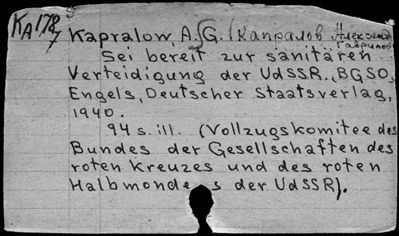 KA 178/7
Kapralow, A. G. (Капралов Алексей
Гаврилов
Sei bereit zur sanitären
Verteidigung der UdSSR., BGSO,
Engels, Deutscher Staatsverlag,
1940.
94 s. ill. (Vollzugskomitee des
Bundes der Gesellschaften des
roten Kreuzes und des roten
Halbmondes der UdSSR).